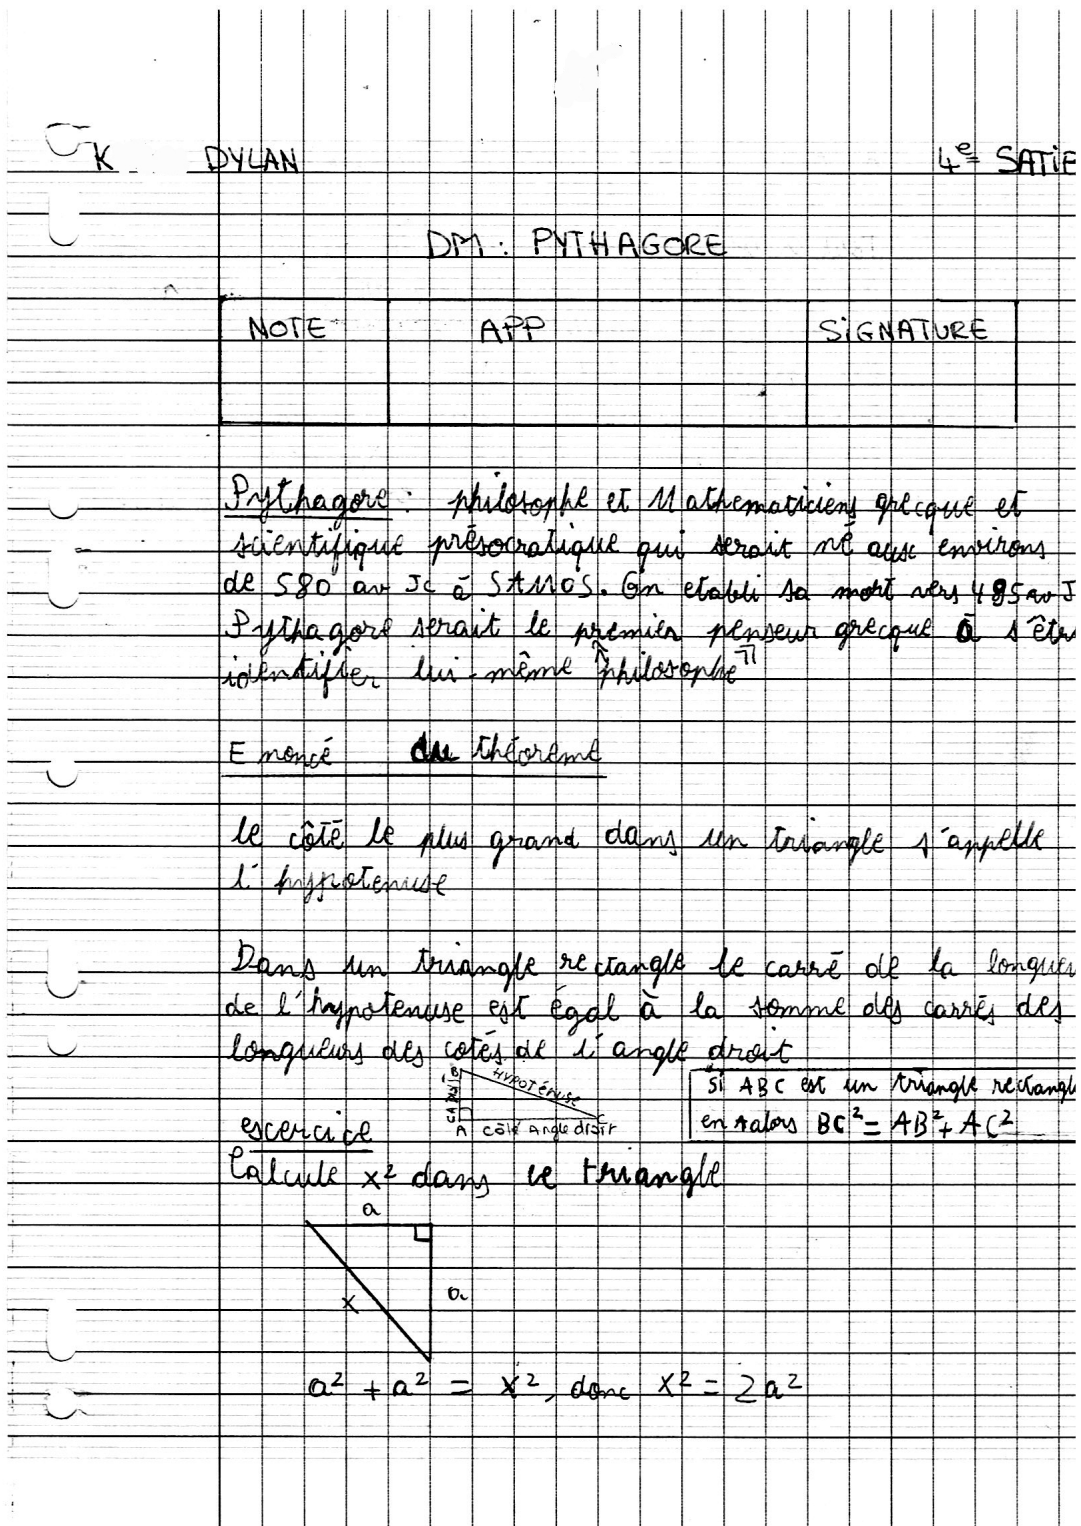 K DYLAN 4e SATiE
DM : PYTHAGORE
NOTE APP SiGNATURE
Pythagore : philosophe et Mathematiciens grecque et
scientifique présocratique qui serait né aux environs
de 580 av JC à SAMOS. On etabli sa mort vers 485 av J
Pythagore serait le premier penseur grecque à s'être
identifier lui-même "philosophe"
Enoncé du théoreme
le côté le plus grand dans un triangle s'appelle
l'hypotenuse
Dans un triangle rectangle le carré de la longueu
de l'hypotenuse est égal à la somme des carrés des
longueurs des cotés de l'angle droit
B HYPOTÉNUSE C
A côté Angle droit
Si ABC est un triangle rectangle
en A alors BC² = AB² + AC²
exercice
Calcule x² dans ce triangle
a
x a
a² + a² = x², donc x² = 2a²